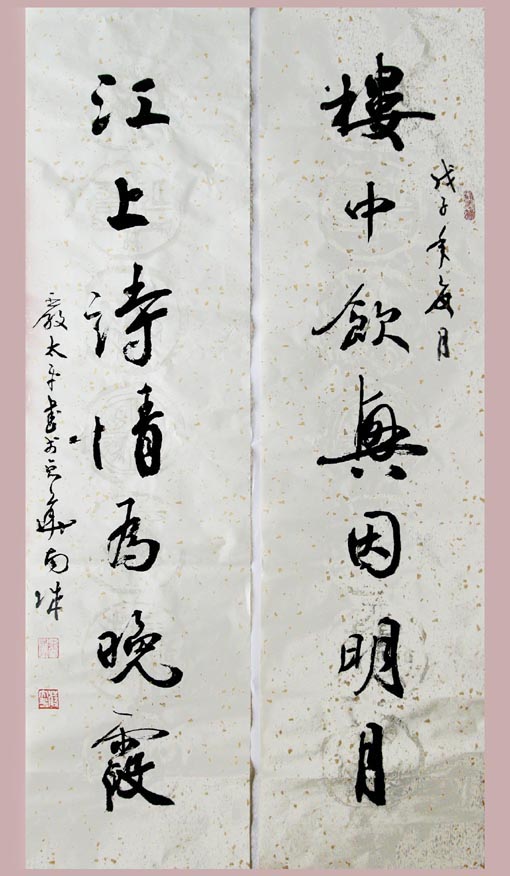 戊子年夏月
樓中飲興因明月
江上詩情為晚霞
嚴太平書於京華南